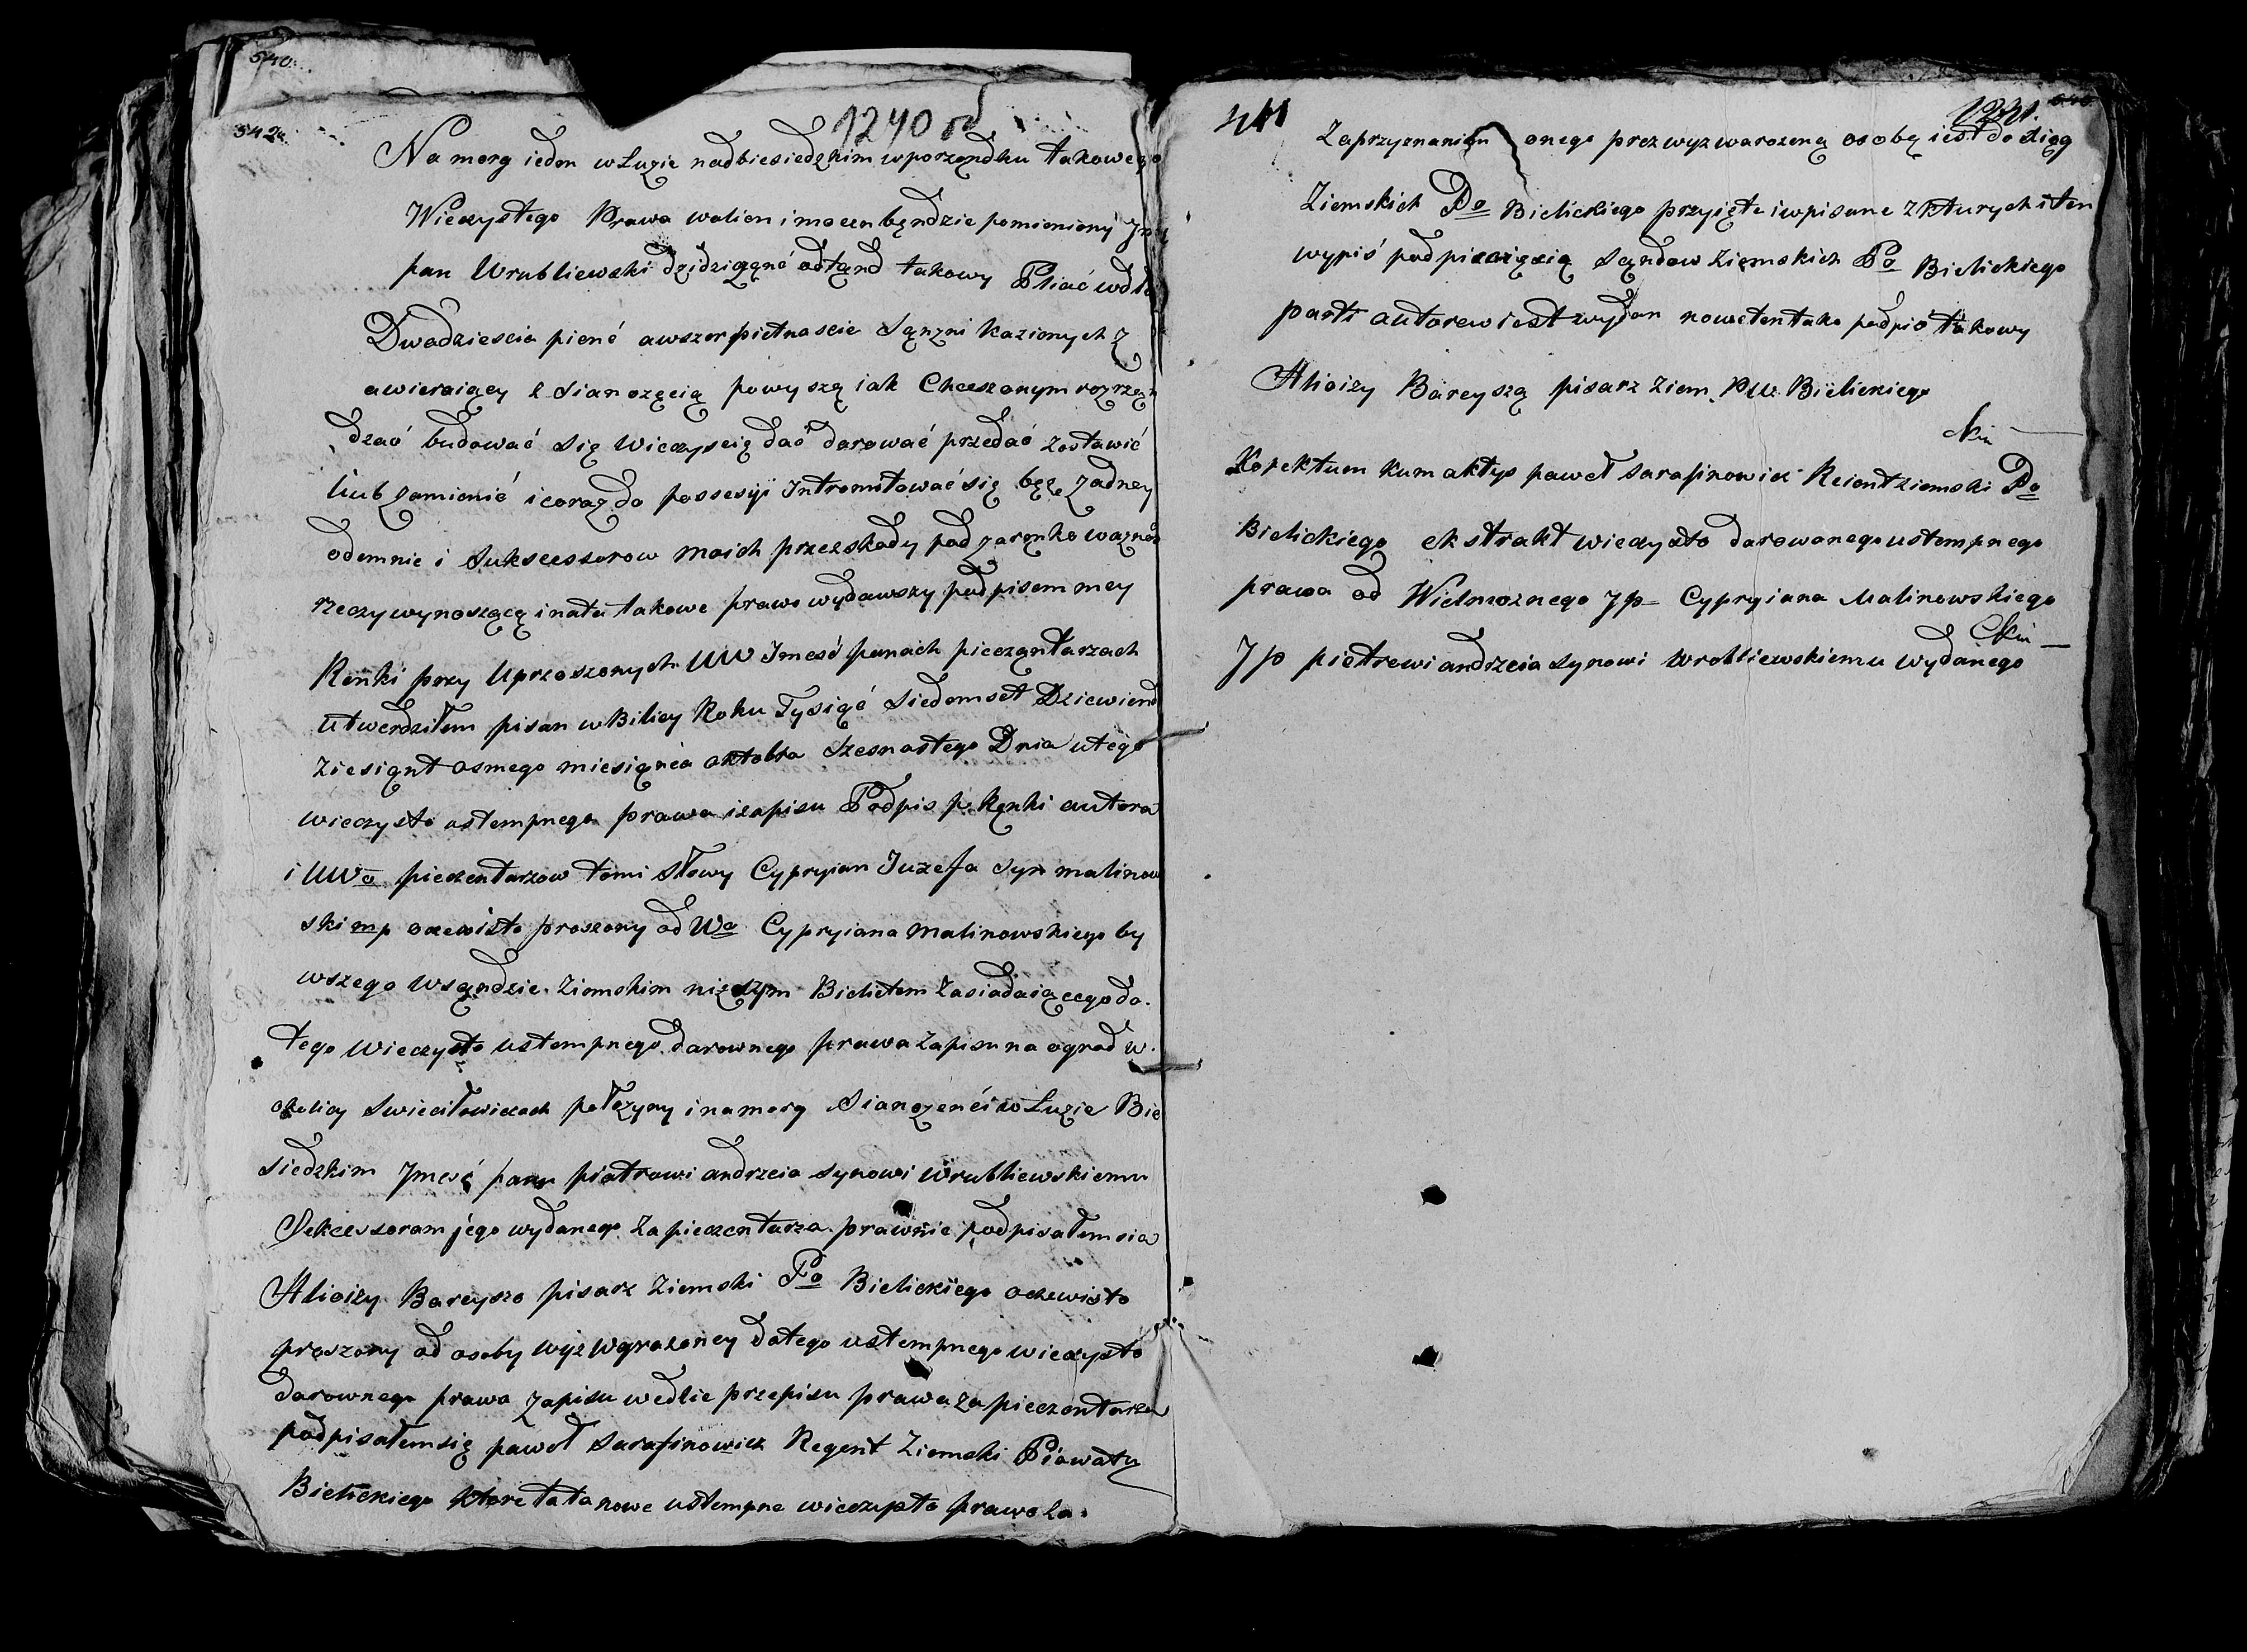 540
542
1240 od
Na morg ieden w Łuzie nadbiesiedzkim w porzondku takowego
Wieczystego Prawa wolien i mocen będzie pomieniony
pan Wrubliewski odtąnd takowy
Dwadziescia pienć a wszerpietnascie Sąnzni kazionych z
awieraiący z Sianozęcią powyszą iak Chceszonym rozrzą
dzać budować się Wieczyscią dać darować przedać zostawić
liub zamienić i coraz do possesyi Intromitować się bęz żadney
odemnie i Sukscessorow moich przezskody pod zarenko
rzeczy wynoszącą i nato takowe prawo wydawszy podpisem mey
Renki przy Uproszonych UW Jmcść panach pieczantarzach
Utwerdziłem pisan w Bilicy Roku Tysiąć Siedemset Dziewiend
ziesiąnt osmego miesiąnca oktobra Szesnastego Dnia utego
wieczysto ustempnego prawa i zapisu Podpis p. Renki autora
i UWo pieczentarzow temi słowy Cypryian Juzefa syn malinow
ski mp oczewisto proszony od Wo Cypryiana Malinowskiego by
wszego Wsąndzie Ziemskim Zasiadaiącego do
tego wieczysto ustempnego darownego prawa zapisu na ogrod w
okolicy Swieciłowiczach połozyny i na morg Sianozenci w Łuzie Bie
siedzkim Jmcść panu piotrowi andrzeia synowi wrubliewskiemu
Sekcessoram jego wydanego Za pieczentarza prawnie podpisałem sia
Alioizy Bareysza pisarz Ziemski Po Bielickiego oczewisto
proszony od osoby wyz wyrazoney do tego ustempnego wieczysto
darownego prawa zapisu wedlie przepisu prawa za pieczentarza
podpisałem się paweł Sarafinowicz Regent Ziemski Powatu
Bielickiego ktore tatakowe ustempne wieczysto prawo za
541
1241
Zaprzyznaniem onego przez wyz warozoną osobę iest do xiąg
Ziemskich Po Bielickiego przyięte i wpisane z kturych i ten
wypis pod Sąndow Ziemskich Po Bielickiego
autorewi iest wydan takowy
Alioizy Bareyszą pisarz Ziem. Pw Bielickiego
Korektum kum aktys paweł sarafinowicz Reient ziemski Po
Bielickiego ekstrakt wieczysto darowanego ustempnego
prawa od Wielmoznego Jp Cypryiana Malinowskiego
Jp piotrewi andrzeia synowi wrobliewskiemu wydanego